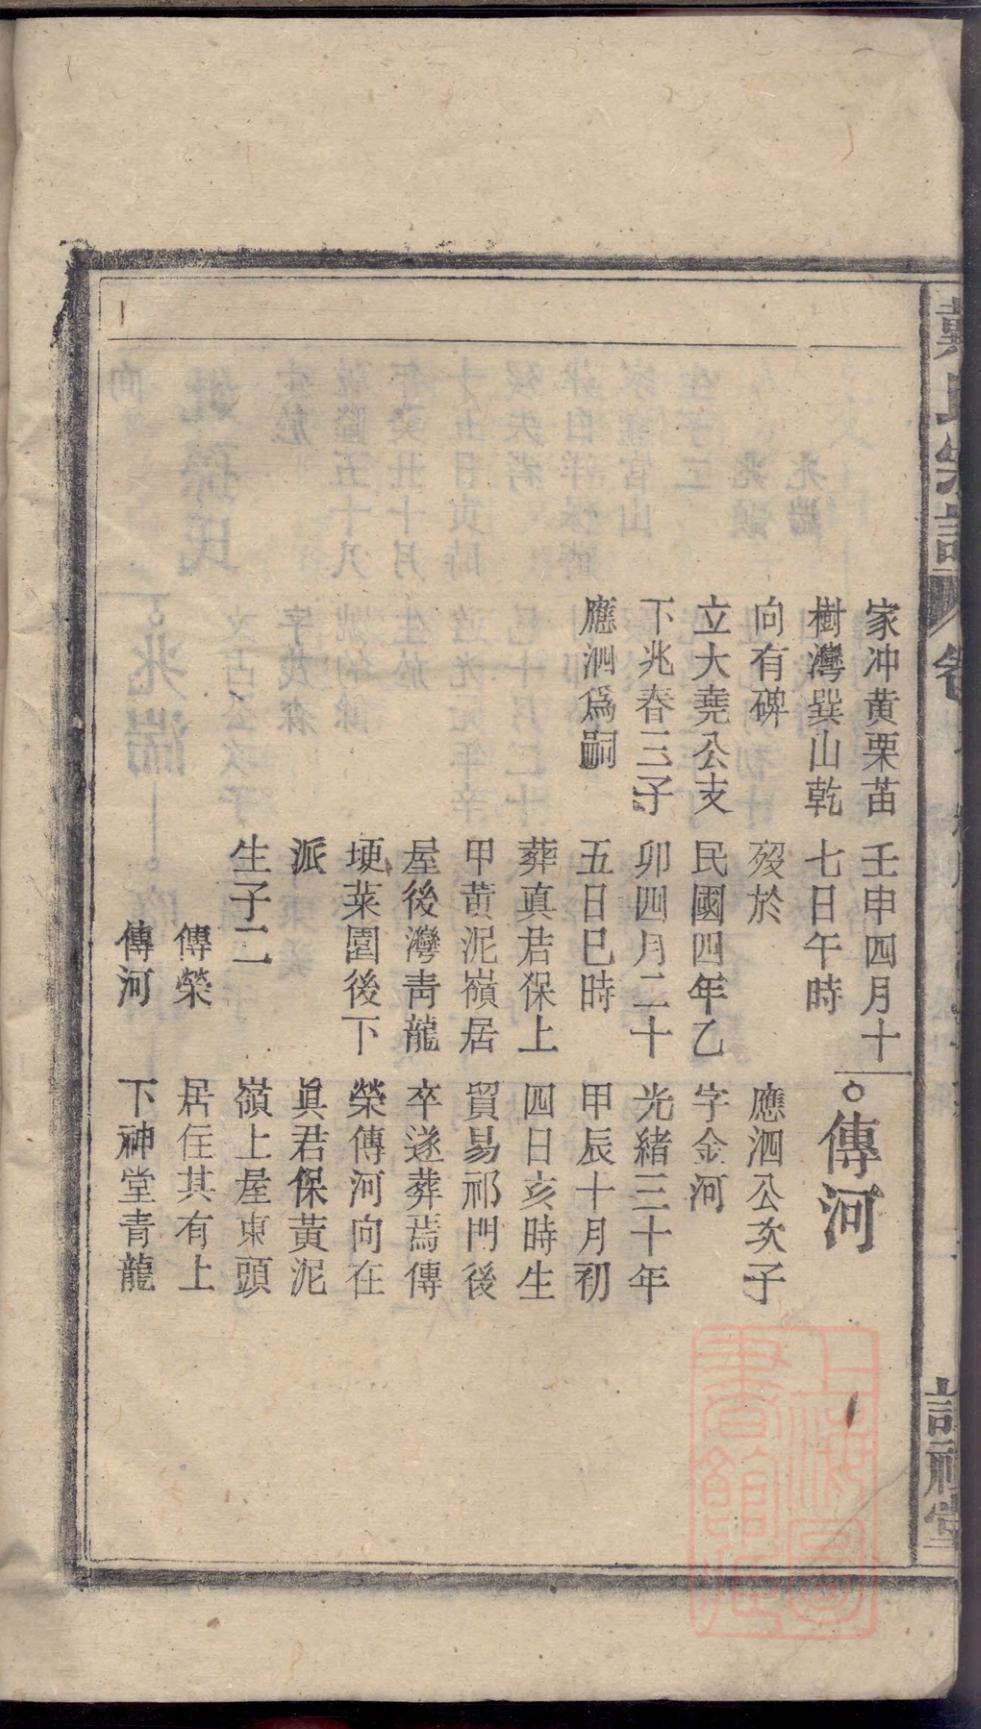 戴氏宗譜
家冲黄栗苗
樹灣巽山乾
向有碑
立大堯公支
下兆春三子
應泗爲嗣
壬申四月十
七日午時
歿於
民國四年乙
卯四月二十
五日巳時
葬真君保上
甲黄泥嶺居
屋後灣青龍
埂菜園後下
派
生子二
傳榮
傳河
傳河
應泗公次子
字金河
光緒三十年
甲辰十月初
四日亥時生
貿易祁門後
卒遂葬焉傳
榮傳河向在
眞君保黄泥
嶺上屋東頭
居住其有上
下神堂青龍
上海圖
書館藏